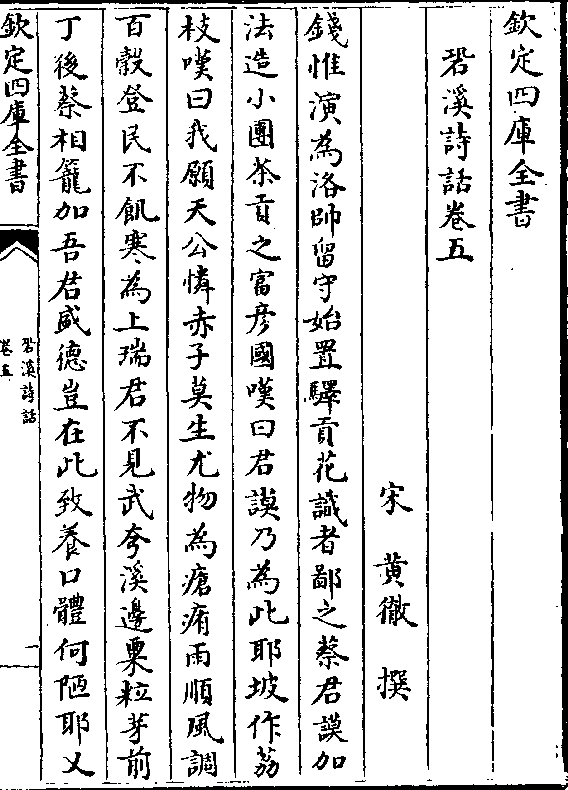 欽定四庫全書
䂬溪詩話卷五
宋 黃徹 撰
錢惟演為洛帥留守始置驛貢花識者鄙之蔡君謨加
法造小團茶貢之富彦國嘆曰君謨乃為此耶坡作荔
枝嘆曰我願天公憐赤子莫生尤物為瘡痏雨順風調
百榖登民不飢寒為上瑞君不見武夸溪邊粟粒芽前
丁後蔡相籠加吾君盛德豈在此致養口體何陋耶乂
欽定四庫全書
䂬溪詩話
卷五
一